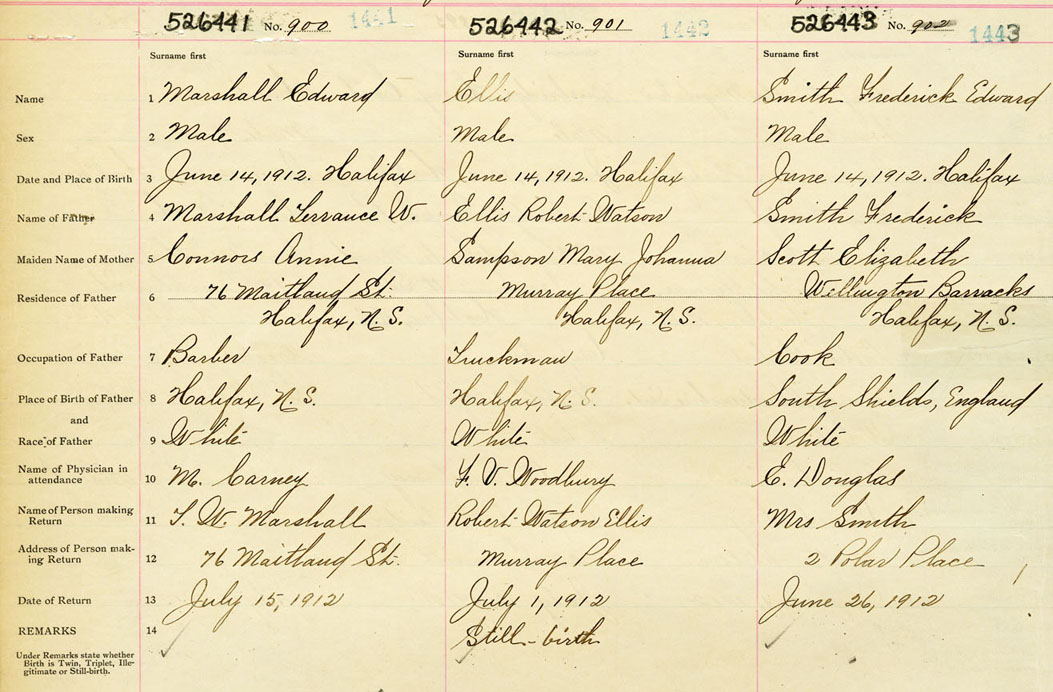 526441 No. 900 1441 526442 No. 901 1442 526443 No. 902 1443
Surname first Surname first Surname first
Name 1 Marshall Edward Ellis Smith Frederick Edward
Sex 2 Male Male Male
Date and Place of Birth 3 June 14, 1912. Halifax June 14, 1912. Halifax June 14, 1912. Halifax
Name of Father 4 Marshall Terrance W. Ellis Robert Watson Smith Frederick
Maiden Name of Mother 5 Connors Annie Sampson Mary Johanna Scott Elizabeth
Residence of Father 6 76 Maitland St. Murray Place Wellington Barracks
Halifax, N.S. Halifax, N.S. Halifax, N.S.
Occupation of Father 7 Barber Truckman Cook
Place of Birth of Father 8 Halifax, N.S. Halifax, N.S. South Shields, England
and
Race of Father 9 White White White
Name of Physician in
attendance 10 M. Carney F. V. Woodbury E. Douglas
Name of Person making
Return 11 T. W. Marshall Robert Watson Ellis Mrs Smith
Address of Person mak-
ing Return 12 76 Maitland St. Murray Place 2 Polar Place
Date of Return 13 July 15, 1912 July 1, 1912 June 26, 1912
REMARKS 14 Still-birth
Under Remarks state whether
Birth is Twin, Triplet, Ille-
gitimate or Still-birth.